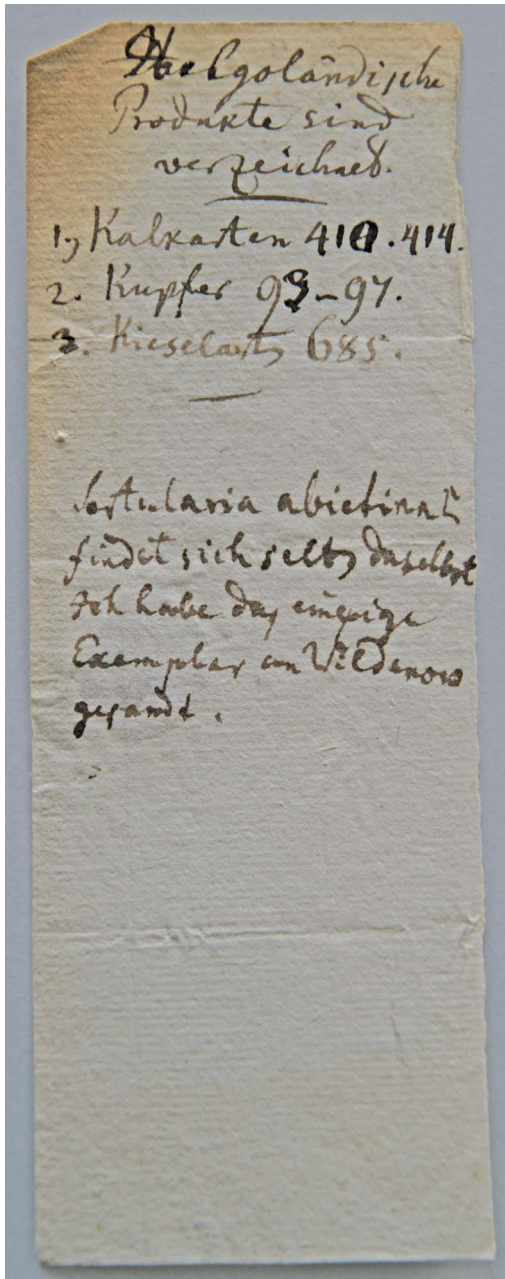 Helgoländische
Produkte sind
verzeichnet.
1, Kalkarten 410.414.
2. Kupfer 93-97.
3. Kieselart, 685.
Sertularia abietina L
findet sich selt, daselbst
Ich habe das einzige
Exemplar an Vildenow
gesandt.